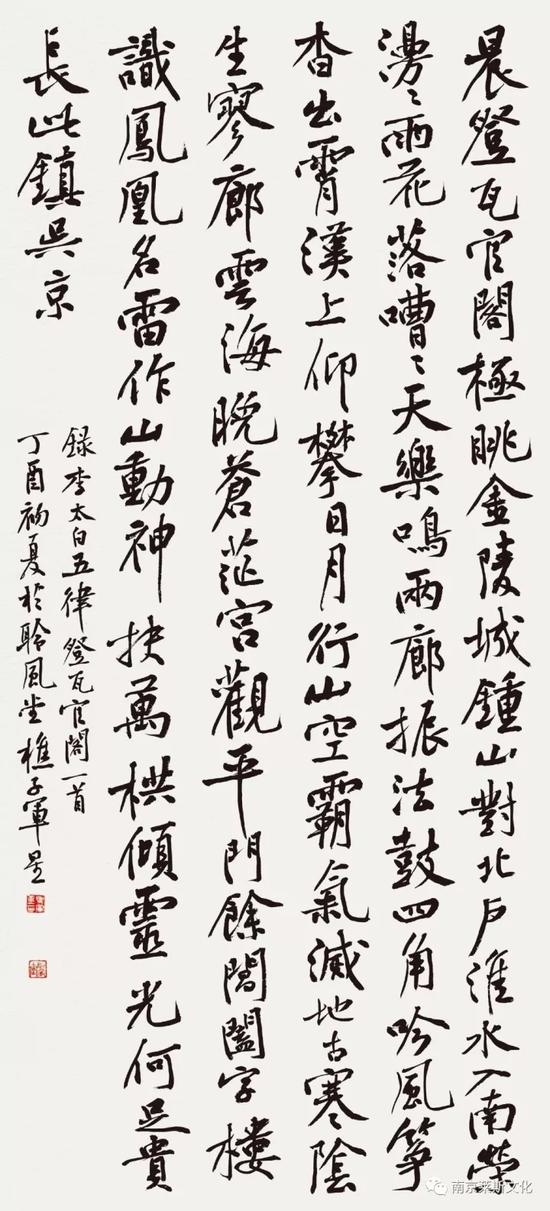 晨登瓦官閣極眺金陵城鍾山對北戶淮水入南榮
漫〻雨花落嘈〻天樂鳴兩廊振法鼓四角吟風箏
杳出霄漢上仰攀日月行山空霸氣滅地古寒陰
生寥廊雲海晚蒼茫宮觀平門餘閶闔字樓
識鳳凰名雷作山動神扶萬栱傾靈光何足貴
長此鎮吳京
錄李太白五律登瓦官閣一首
丁酉初夏於聆風堂樵子軍
南京莱斯文化